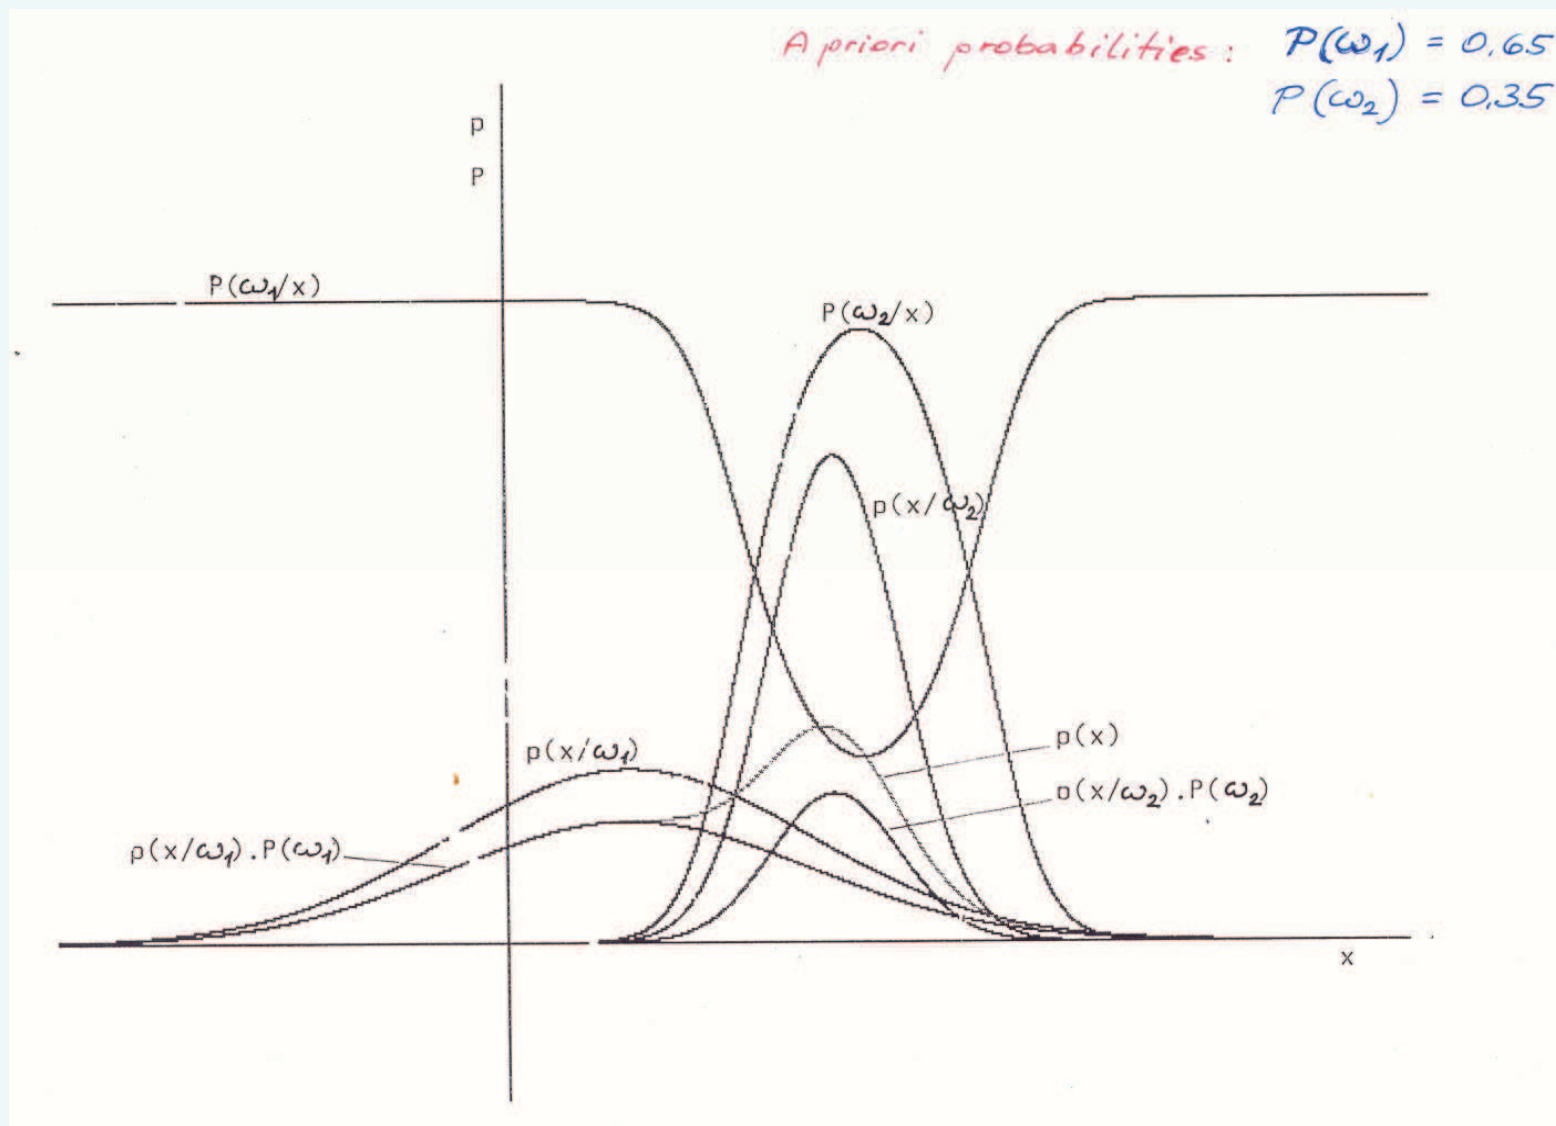 A priori probabilities: P(ω1) = 0.65
P(ω2) = 0.35
p
P
P(ω1/x)
P(ω2/x)
p(x/ω2)
p(x/ω1)
p(x)
p(x/ω2).P(ω2)
p(x/ω1).P(ω1)
x